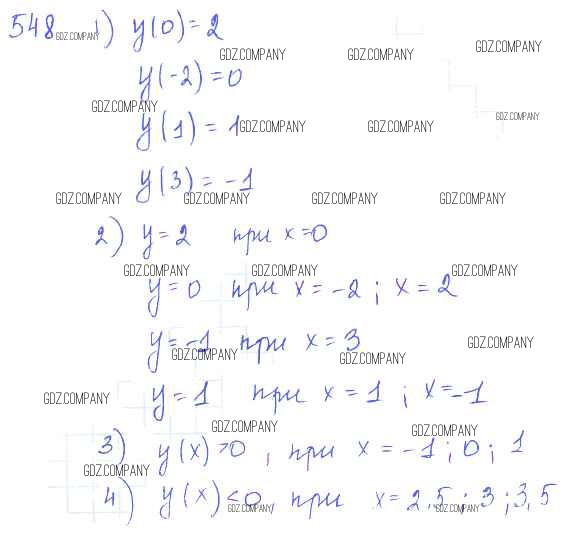 548 GDZ.COMPANY 1) y(0)=2
GDZ.COMPANY GDZ.COMPANY GDZ.COMPANY
y(-2)=0
GDZ.COMPANY GDZ.COMPANY
y(1)=1 GDZ.COMPANY GDZ.COMPANY
y(3)=-1
GDZ.COMPANY GDZ.COMPANY GDZ.COMPANY GDZ.COMPANY
2) y=2 при x=0
GDZ.COMPANY GDZ.COMPANY GDZ.COMPANY
y=0 при x=-2; x=2
y=-1 при x=3 GDZ.COMPANY
GDZ.COMPANY GDZ.COMPANY
GDZ.COMPANY y=1 при x=1; x=-1
GDZ.COMPANY GDZ.COMPANY
3) y(x)>0, при x=-1; 0; 1
GDZ.COMPANY
4) y(x)<0, при x=2,5; 3; 3,5
GDZ.COMPANY GDZ.COMPANY